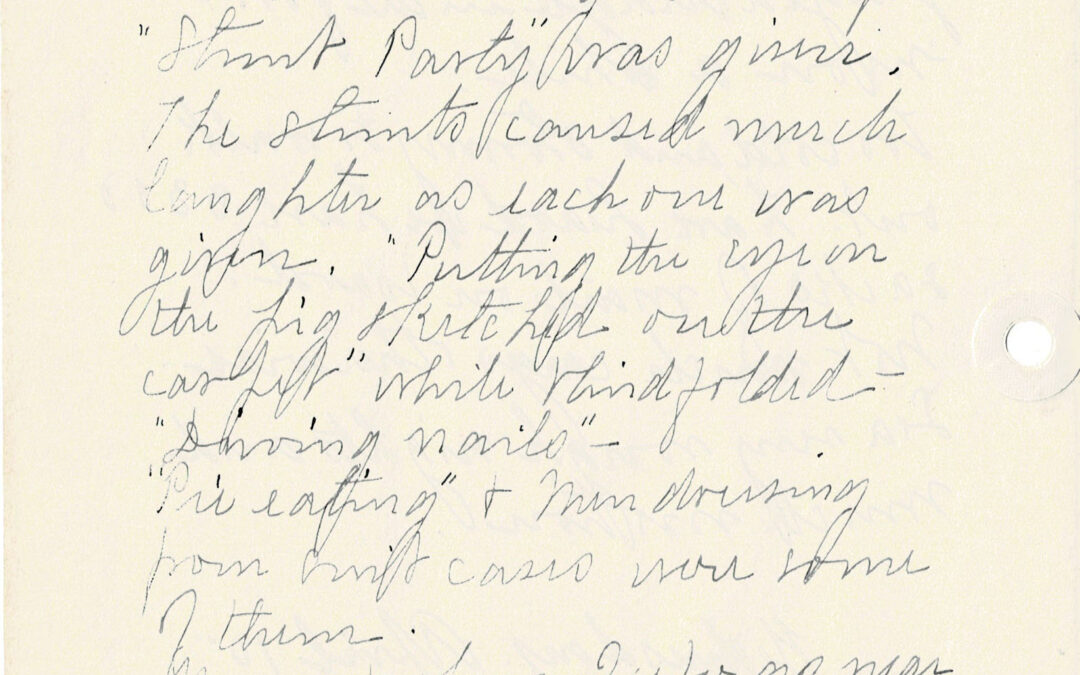 "Stunt Party" was given.
The stunts caused much
laughter as each one was
given. "Putting the eye on
the pig sketched on the
carpet" while blindfolded –
"Driving nails" –
"Pie eating" & Men dressing
from suit cases were some
of them.